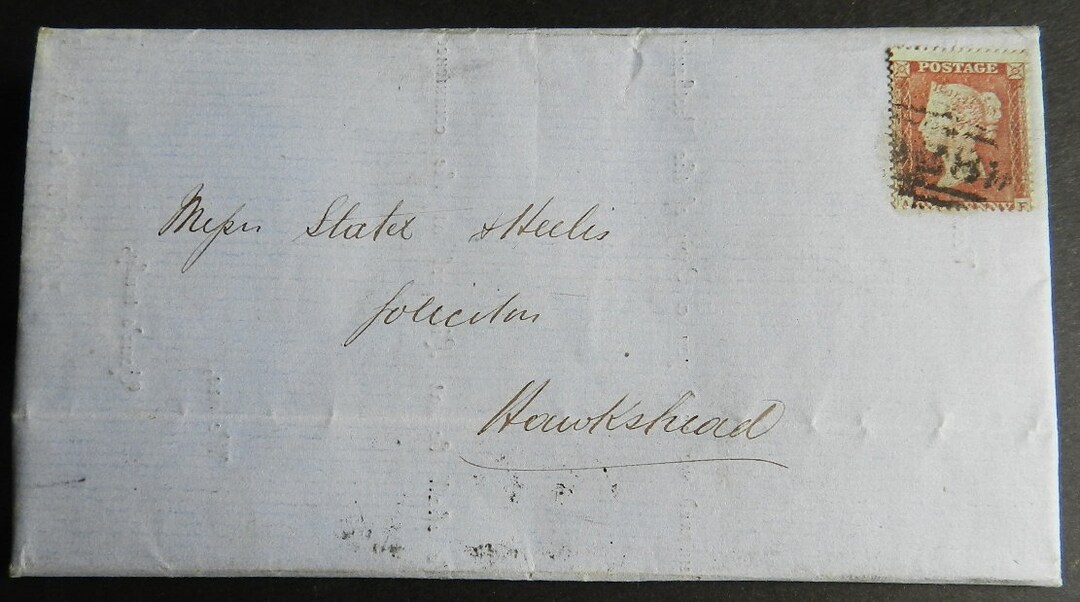 POSTAGE
Messrs Slater & Heelis
Solicitors
Hawkshead